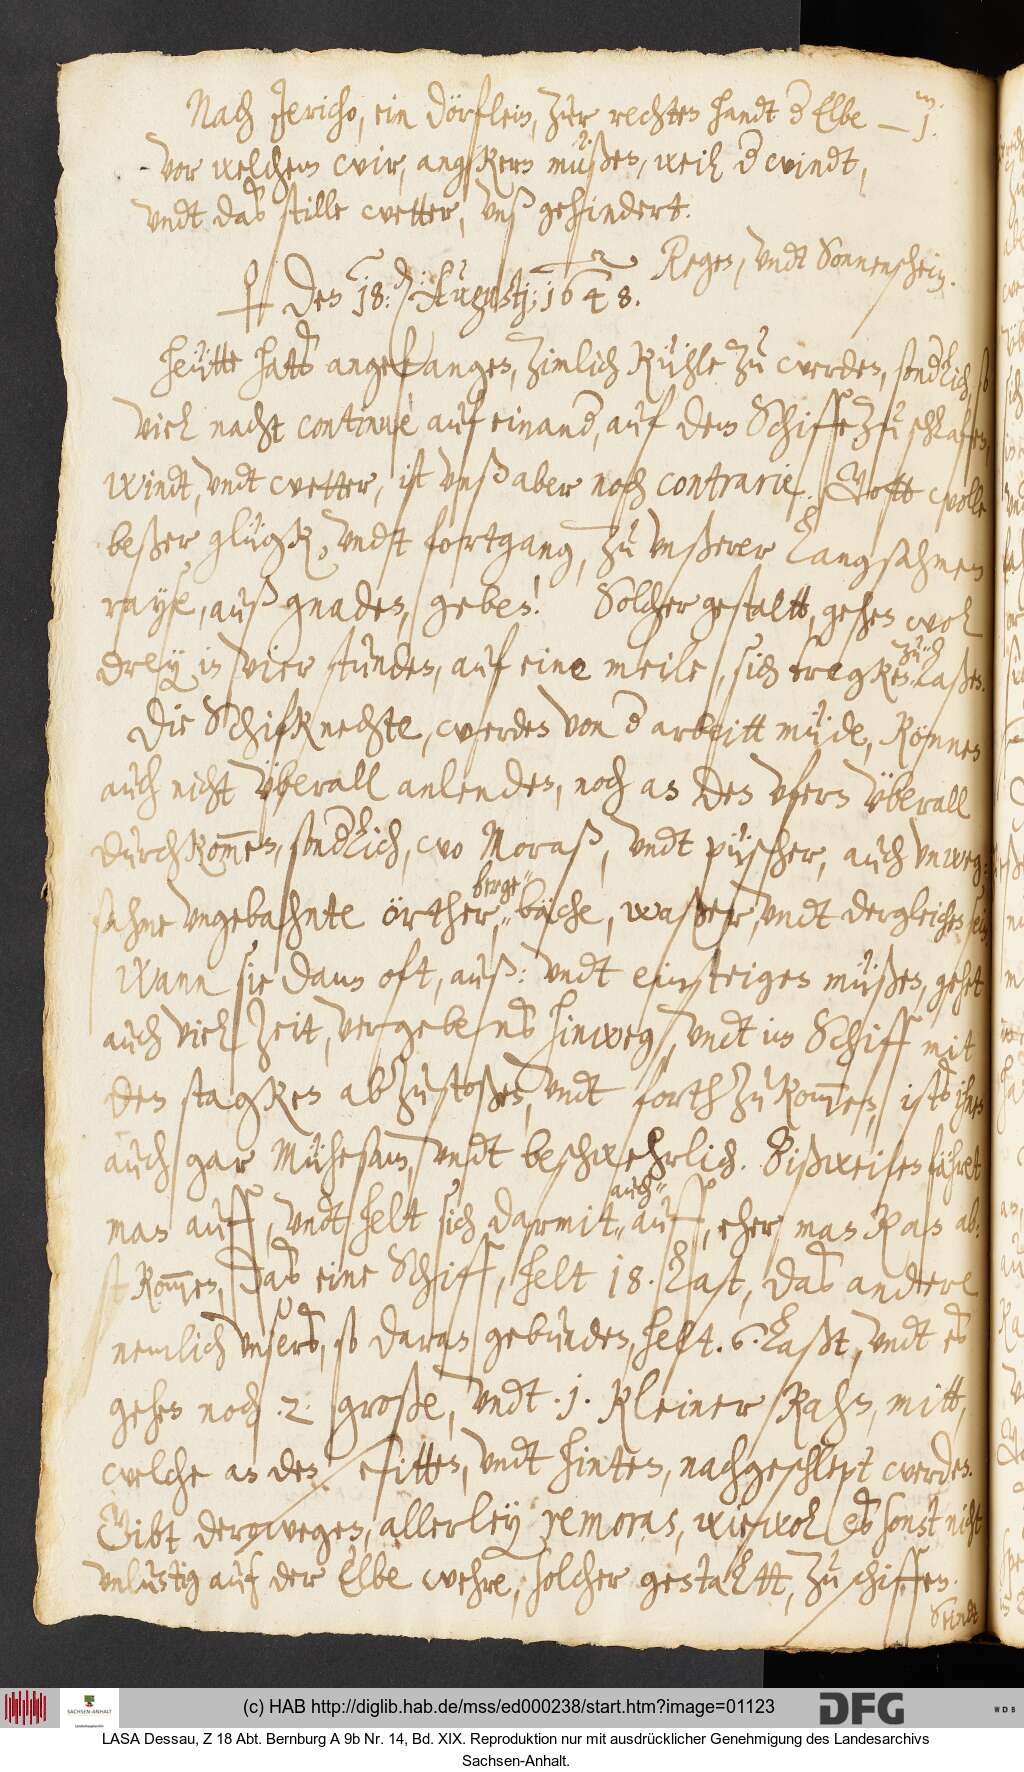 Nach Jericho, ein dörflein, zur rechten handt d Elbe — 1. m.
vor welchem wir, angkern müßen, weil d windt,
vndt das stille wetter, vnß gehindert.
Regen, vndt Sonnenschein.
den 18. Augustj: 1648.
Heütte hats angefangen, zimlich kühle zu werden, sondlich, so
viel nacht continué auf einand, auf dem Schiffe zu schlafen,
windt, vndt wetter, ist vnß aber noch contrarie. Gott wolle
beßer glügk, vndt fortgang, zu vnßerer langsahmen
rayse, auß gnaden, geben! Solcher gestaltt, gehen wol
drey in vier stunden, auf eine meile, sich tregken zu laßen.
Die Schifknechte, werden von d arbeitt müde, können
auch nicht überall anlenden, noch an den vfern überall
durchkom̄en, sondlich, wo Moraß, vndt püscher, auch vnweg-
sahme vngebahnte örther, berge, bäche, waßer, vndt dergleichen sein,
Wann sie dann oft, auß: vndt einsteigen müßen, gehet
auch viel zeit, vergebens hinweg, vndt im Schiff mit
den stagken abzustoßen, vndt forth zu kom̄en, ists ihnen
auch gar Mühesam, vndt beschwehrlich. Bißweilen fähret
man auff, vndt helt sich darmit auch auff, eher man kan ab-
kom̄en, Das eine Schiff, helt 18. Last, das andere
nemlich vnsers, so daran gebunden, helt. 6. Laßt, vndt es
gehen noch .2. große, vndt .1. kleiner Kahn, mitt,
welche an den seitten, vndt hinten, nachgeschlept werden.
Gibt derowegen, allerley remoras, wiewol es sonst nicht
vnlustig auf der Elbe wehre, solcher gestaltt, zu schiffen.
Seindt
(c) HAB http://diglib.hab.de/mss/ed000238/start.htm?image=01123
SACHSEN-ANHALT
DFG
WDB
LASA Dessau, Z 18 Abt. Bernburg A 9b Nr. 14, Bd. XIX. Reproduktion nur mit ausdrücklicher Genehmigung des Landesarchivs
Sachsen-Anhalt.